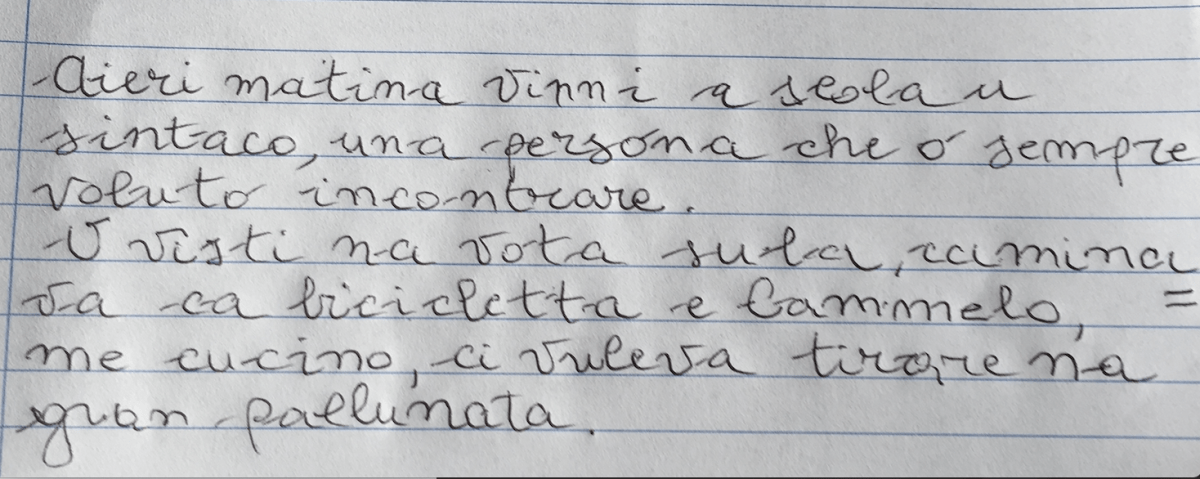 Aieri matina vinni a scola u
sintaco, una persona che ó sempre
voluto incontrare.
U visti na vota sula, camina
va ca bicicletta e Cammelo, =
me cucino, ci vuleva tirare na
gran pallunata.